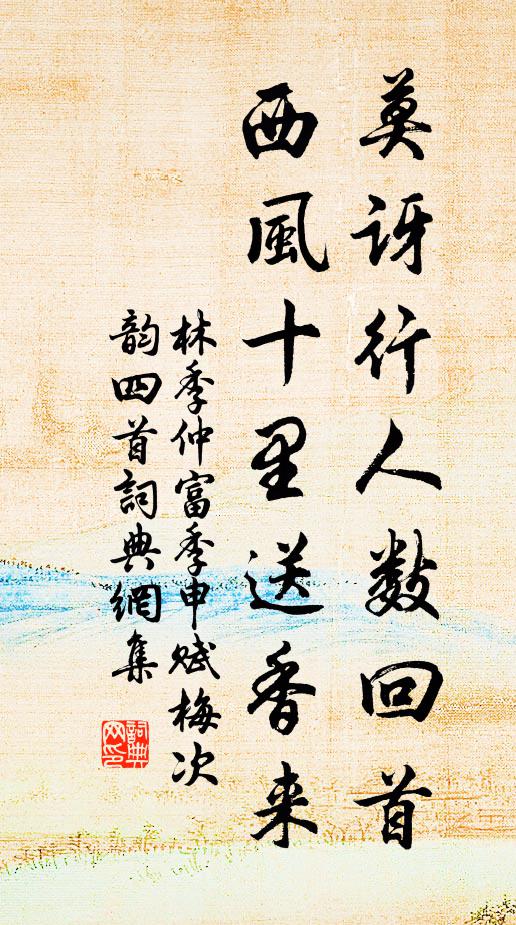 莫訝行人數回首
西風十里送香来
林季仲富季申赋梅次
韵四首詞典網集
詞典
网印